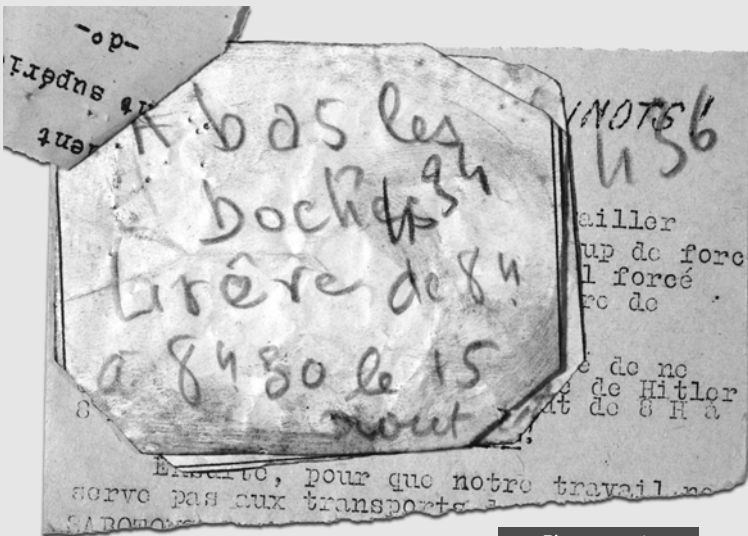 -do-
nt supéri
ent
A bas les
boches 434
Grève de 8h
à 8h30 le 15
aout
436
ailler
up de forc
l forcé
re de
é de ne
e de Hitler
8
t de 8 H à
Ensuite, pour que notre travail ne
serve pas aux transports
SABOTONS